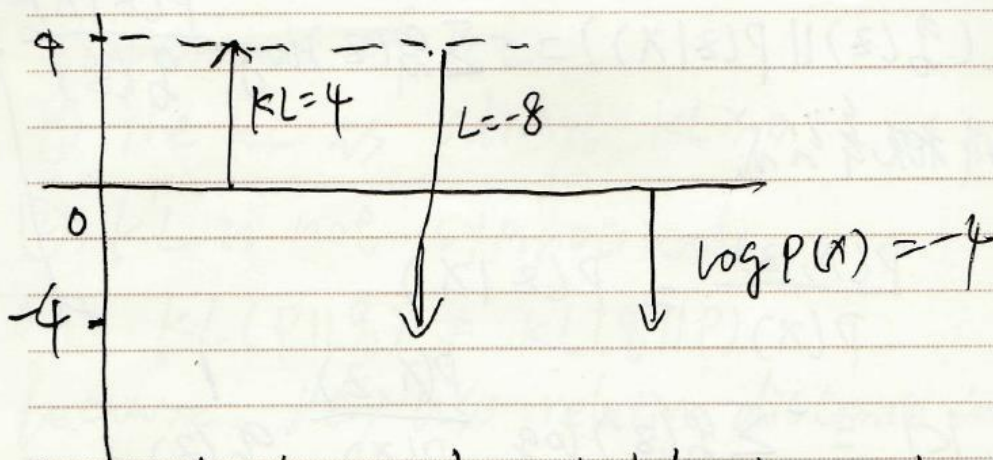 4
KL=4
L=-8
0
log P(X) = -4
-4